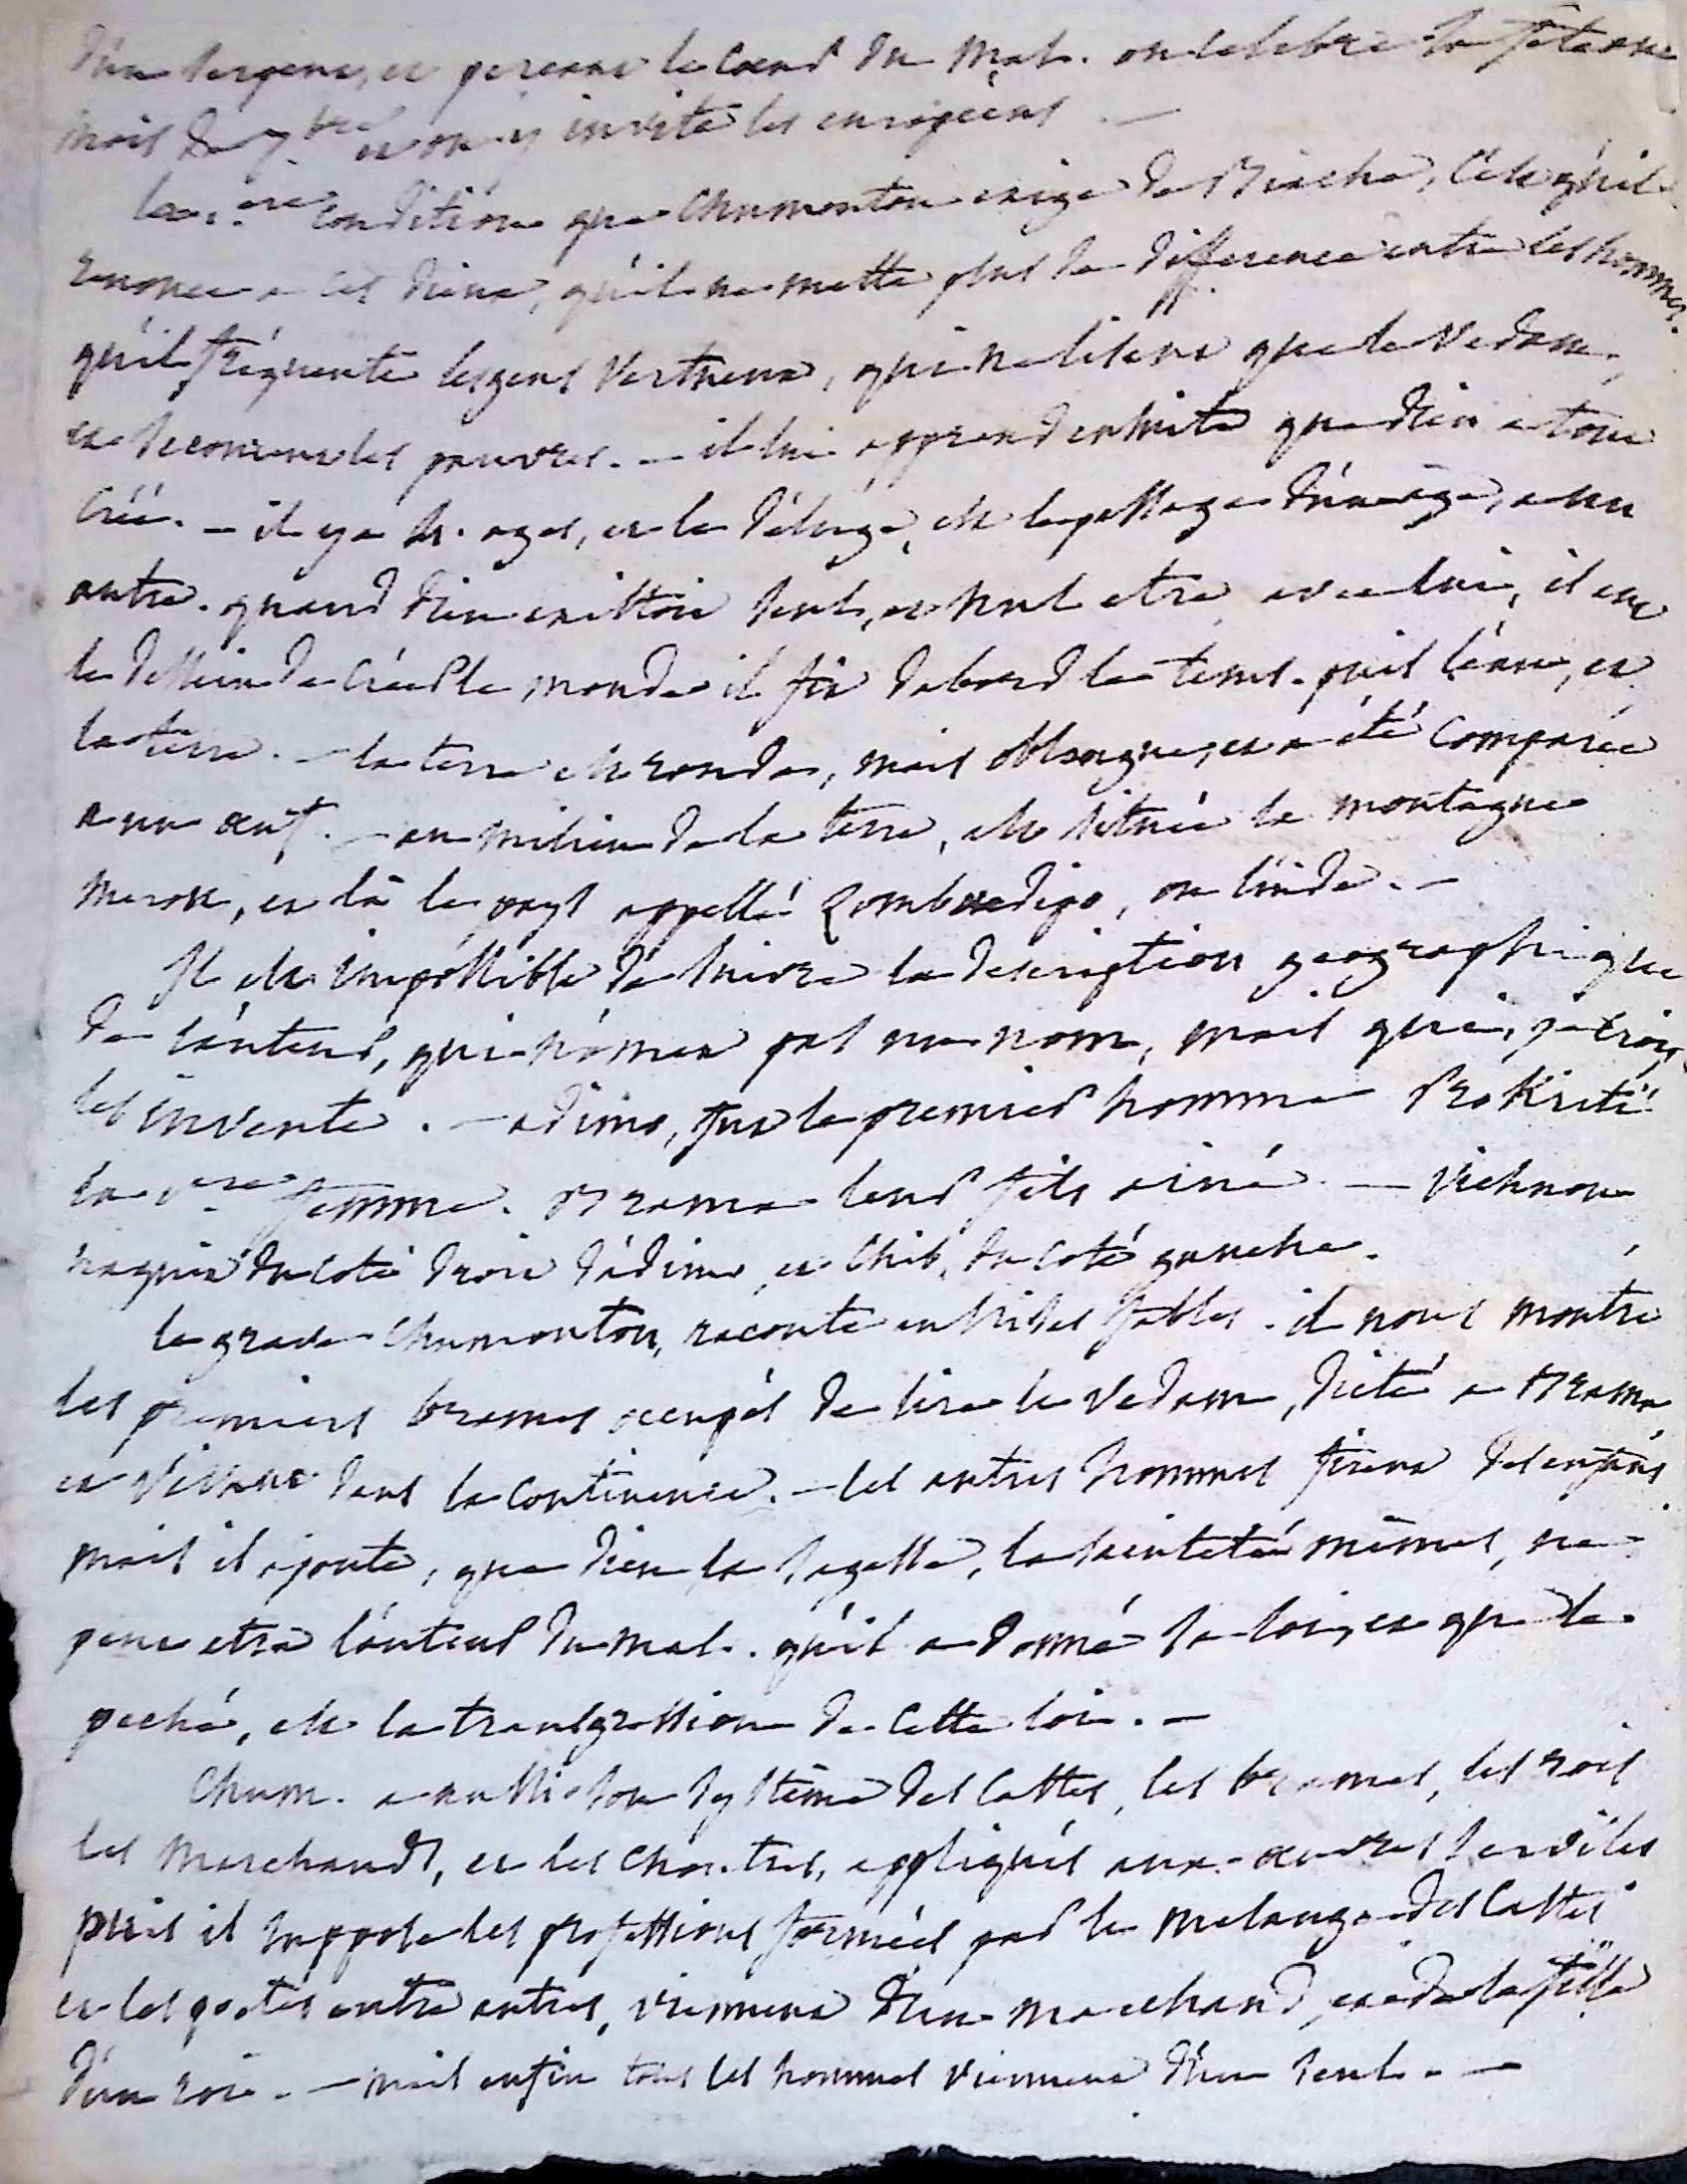 d'un serpent, et perçant le coeur du mal. on celebre sa fete au
mois de 7.bre et on y invite les européens. —
la 1.ere condition que Chumontou exige de Biache, c'est qu'il
renonce a ces dieux, qu'il ne mette plus de difference entre les hommes.
qu'il fréquente les gens vertueux, qui ne lisent que le Vedam,
et secourent les pauvres. — il lui apprend ensuite que dieu a tout
créé. — il y a 4. ages, et le déluge, est le passage d'un age, a un
autre. quand dieu existoit seul, et nul etre avec lui, il eut
le dessein de créer le monde il fit dabord le tems. puis l'eau, et
la terre. — la terre est ronde, mais oblongue, et a été comparée
a un oeuf. — au milieu de la terre, est située la montagne
Merou, et là le pays appellé Zomboudipo, ou l'inde. —
Il est impossible de suivre la description geographique
de l'auteur, qui n'omet pas un nom, mais qui, je crois,
les invente. — adimo, fut le premier homme Prokriti
la 1.ere femme. Brama leur fils ainé. — Vichnou
naquit du coté droit d'adimo, et Chib, du coté gauche.
le grave Chumontou, raconte ensuite des fables. il nous montre
les premiers brames occupés de lire le Vedam, dicté a Brama
et vivant dans la continence. — les autres hommes firent des enfans
mais il ajoute, que dieu la sagesse, la sainteté mêmes, ne
peut etre l'auteur du mal. qu'il a donné sa loi, et que le
peché, est la transgression de cette loi. —
Chum. a aussi son systême des castes, les brames, les rois
les marchands, et les choutres, appliqués aux oeuvres serviles
puis il suppose les professions formées par le melange des castes
et les poetes entre autres, viennent d'un marchand, et de la fille
d'un roi. — mais enfin tous les hommes viennent d'un seul. —